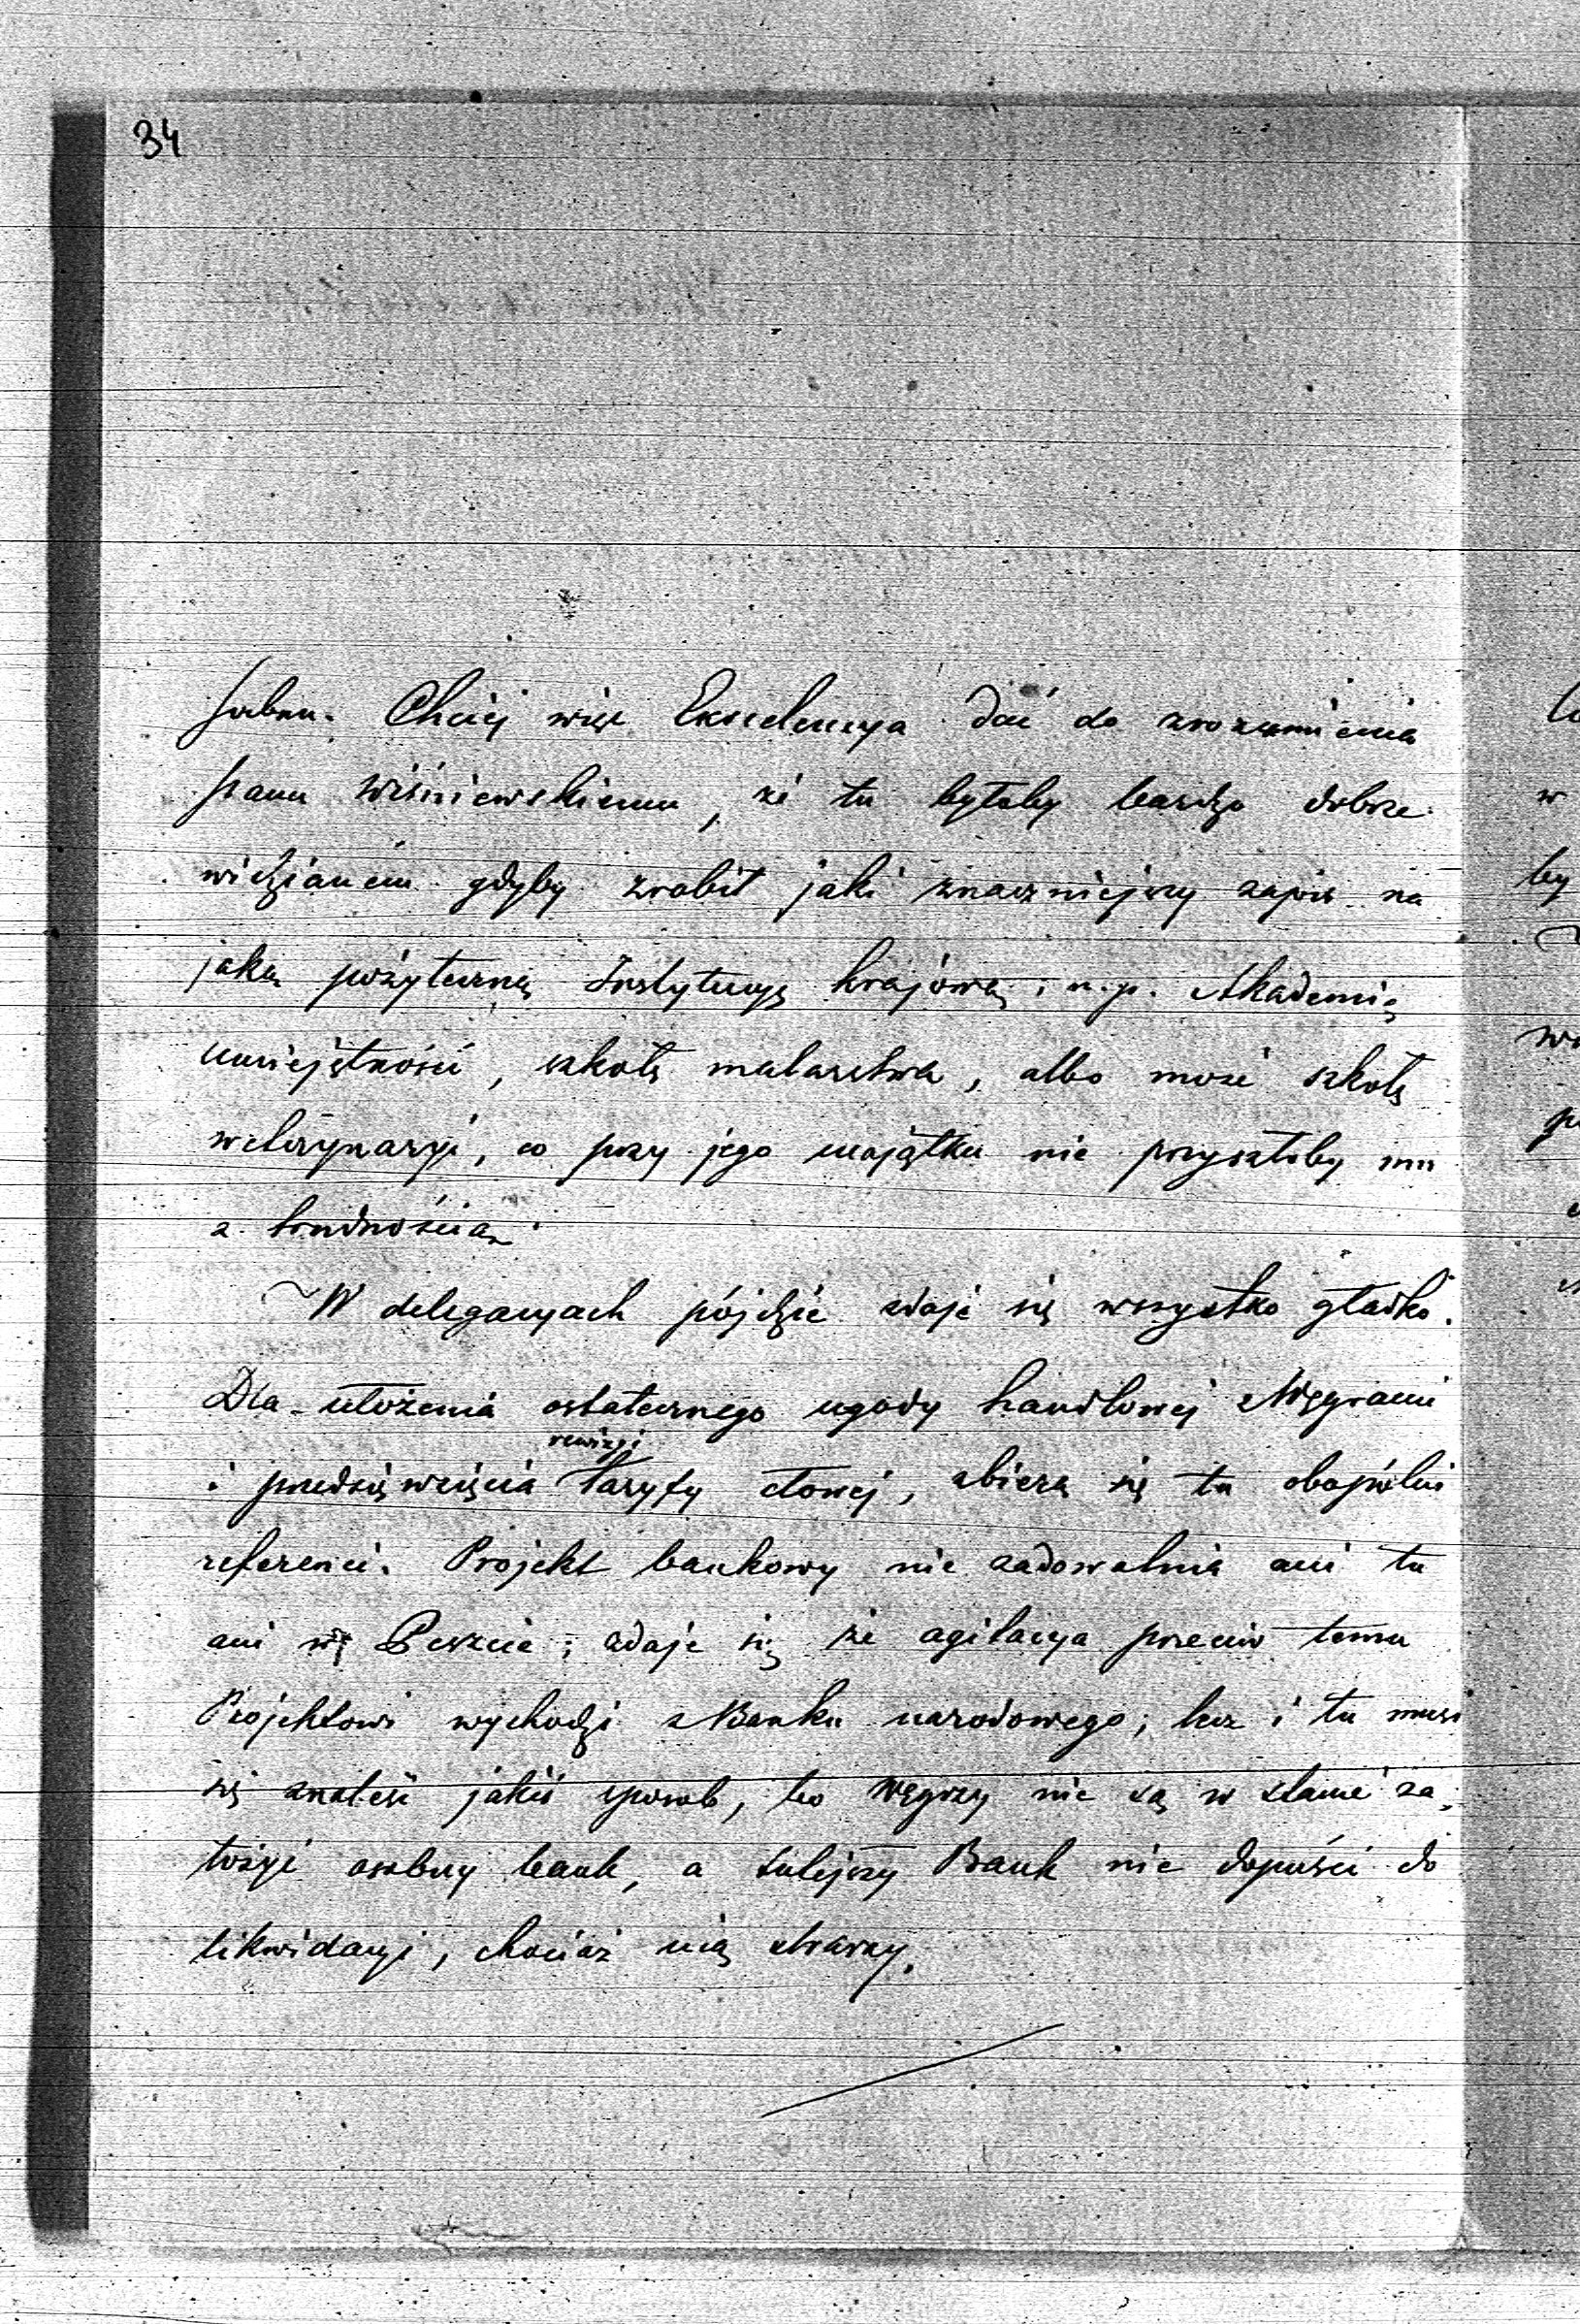 34
sobna. Chciej więc Excelencya dać do zrozumienia
panu Wiśniewskiemu, że tu byłoby bardzo dobrze
widzianem gdyby zrobił jaki znaczniejszy zapis na
jaką pożyteczną Instytucyę krajową; n.p. Akademię
umiejętności, szkołę malarstwa, albo może szkołę
weterynaryi, co przy jego majątku nie przyszłoby mu
z trudnością.
W delegacyach pójdzie zdaje się wszystko gładko.
Dla ułożenia ostatecznego ugody handlowej z Węgrami
rewizyi
i przedsięwzięcia taryfy cłowej, zbiera się tu obopólni
referenci. Projekt bankowy nie zadowalnia ani tu
ani w Peszcie; zdaje się że agitacya przeciw temu
Projektowi wychodzi z Banku narodowego; lecz i tu musi
się znaleść jakiś sposób, bo Węgrzy nie są w stanie za-
łożyć osobny bank, a tutejszy Bank nie dopuści do
likwidacyi, chociaż nią straszy.